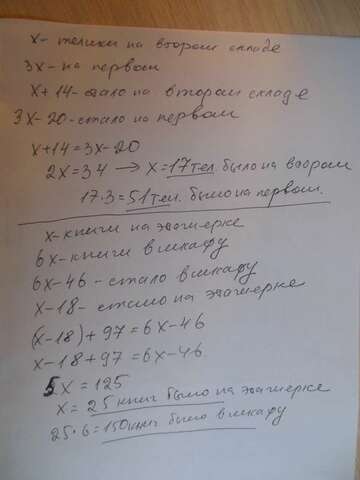 х - телики на втором складе
3х - на первом
х + 14 - стало на втором складе
3х - 20 - стало на первом
х + 14 = 3х - 20
2х = 34 → х = 17 тел. было на втором
17 · 3 = 51 тел. было на первом.
х - книги на этажерке
6х - книги в шкафу
6х - 46 - стало в шкафу
х - 18 - стало на этажерке
(х - 18) + 97 = 6х - 46
х - 18 + 97 = 6х - 46
5х = 125
х = 25 книг было на этажерке
25 · 6 = 150 книг было в шкафу